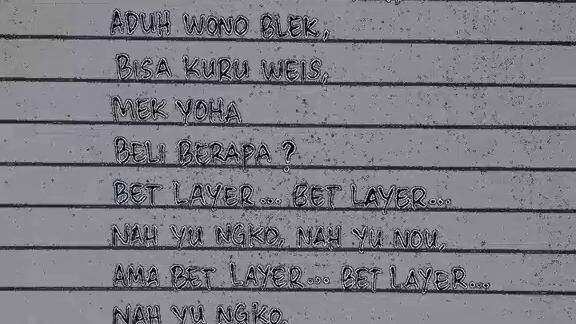 ADUH WONO BLEK,
BISA KURU WEIS,
MEK YOHA
BELI BERAPA ?
BET LAYER... BET LAYER...
NAH YU NGKO, NAH YU NOU,
AMA BET LAYER... BET LAYER...
NAH YU NGKO,